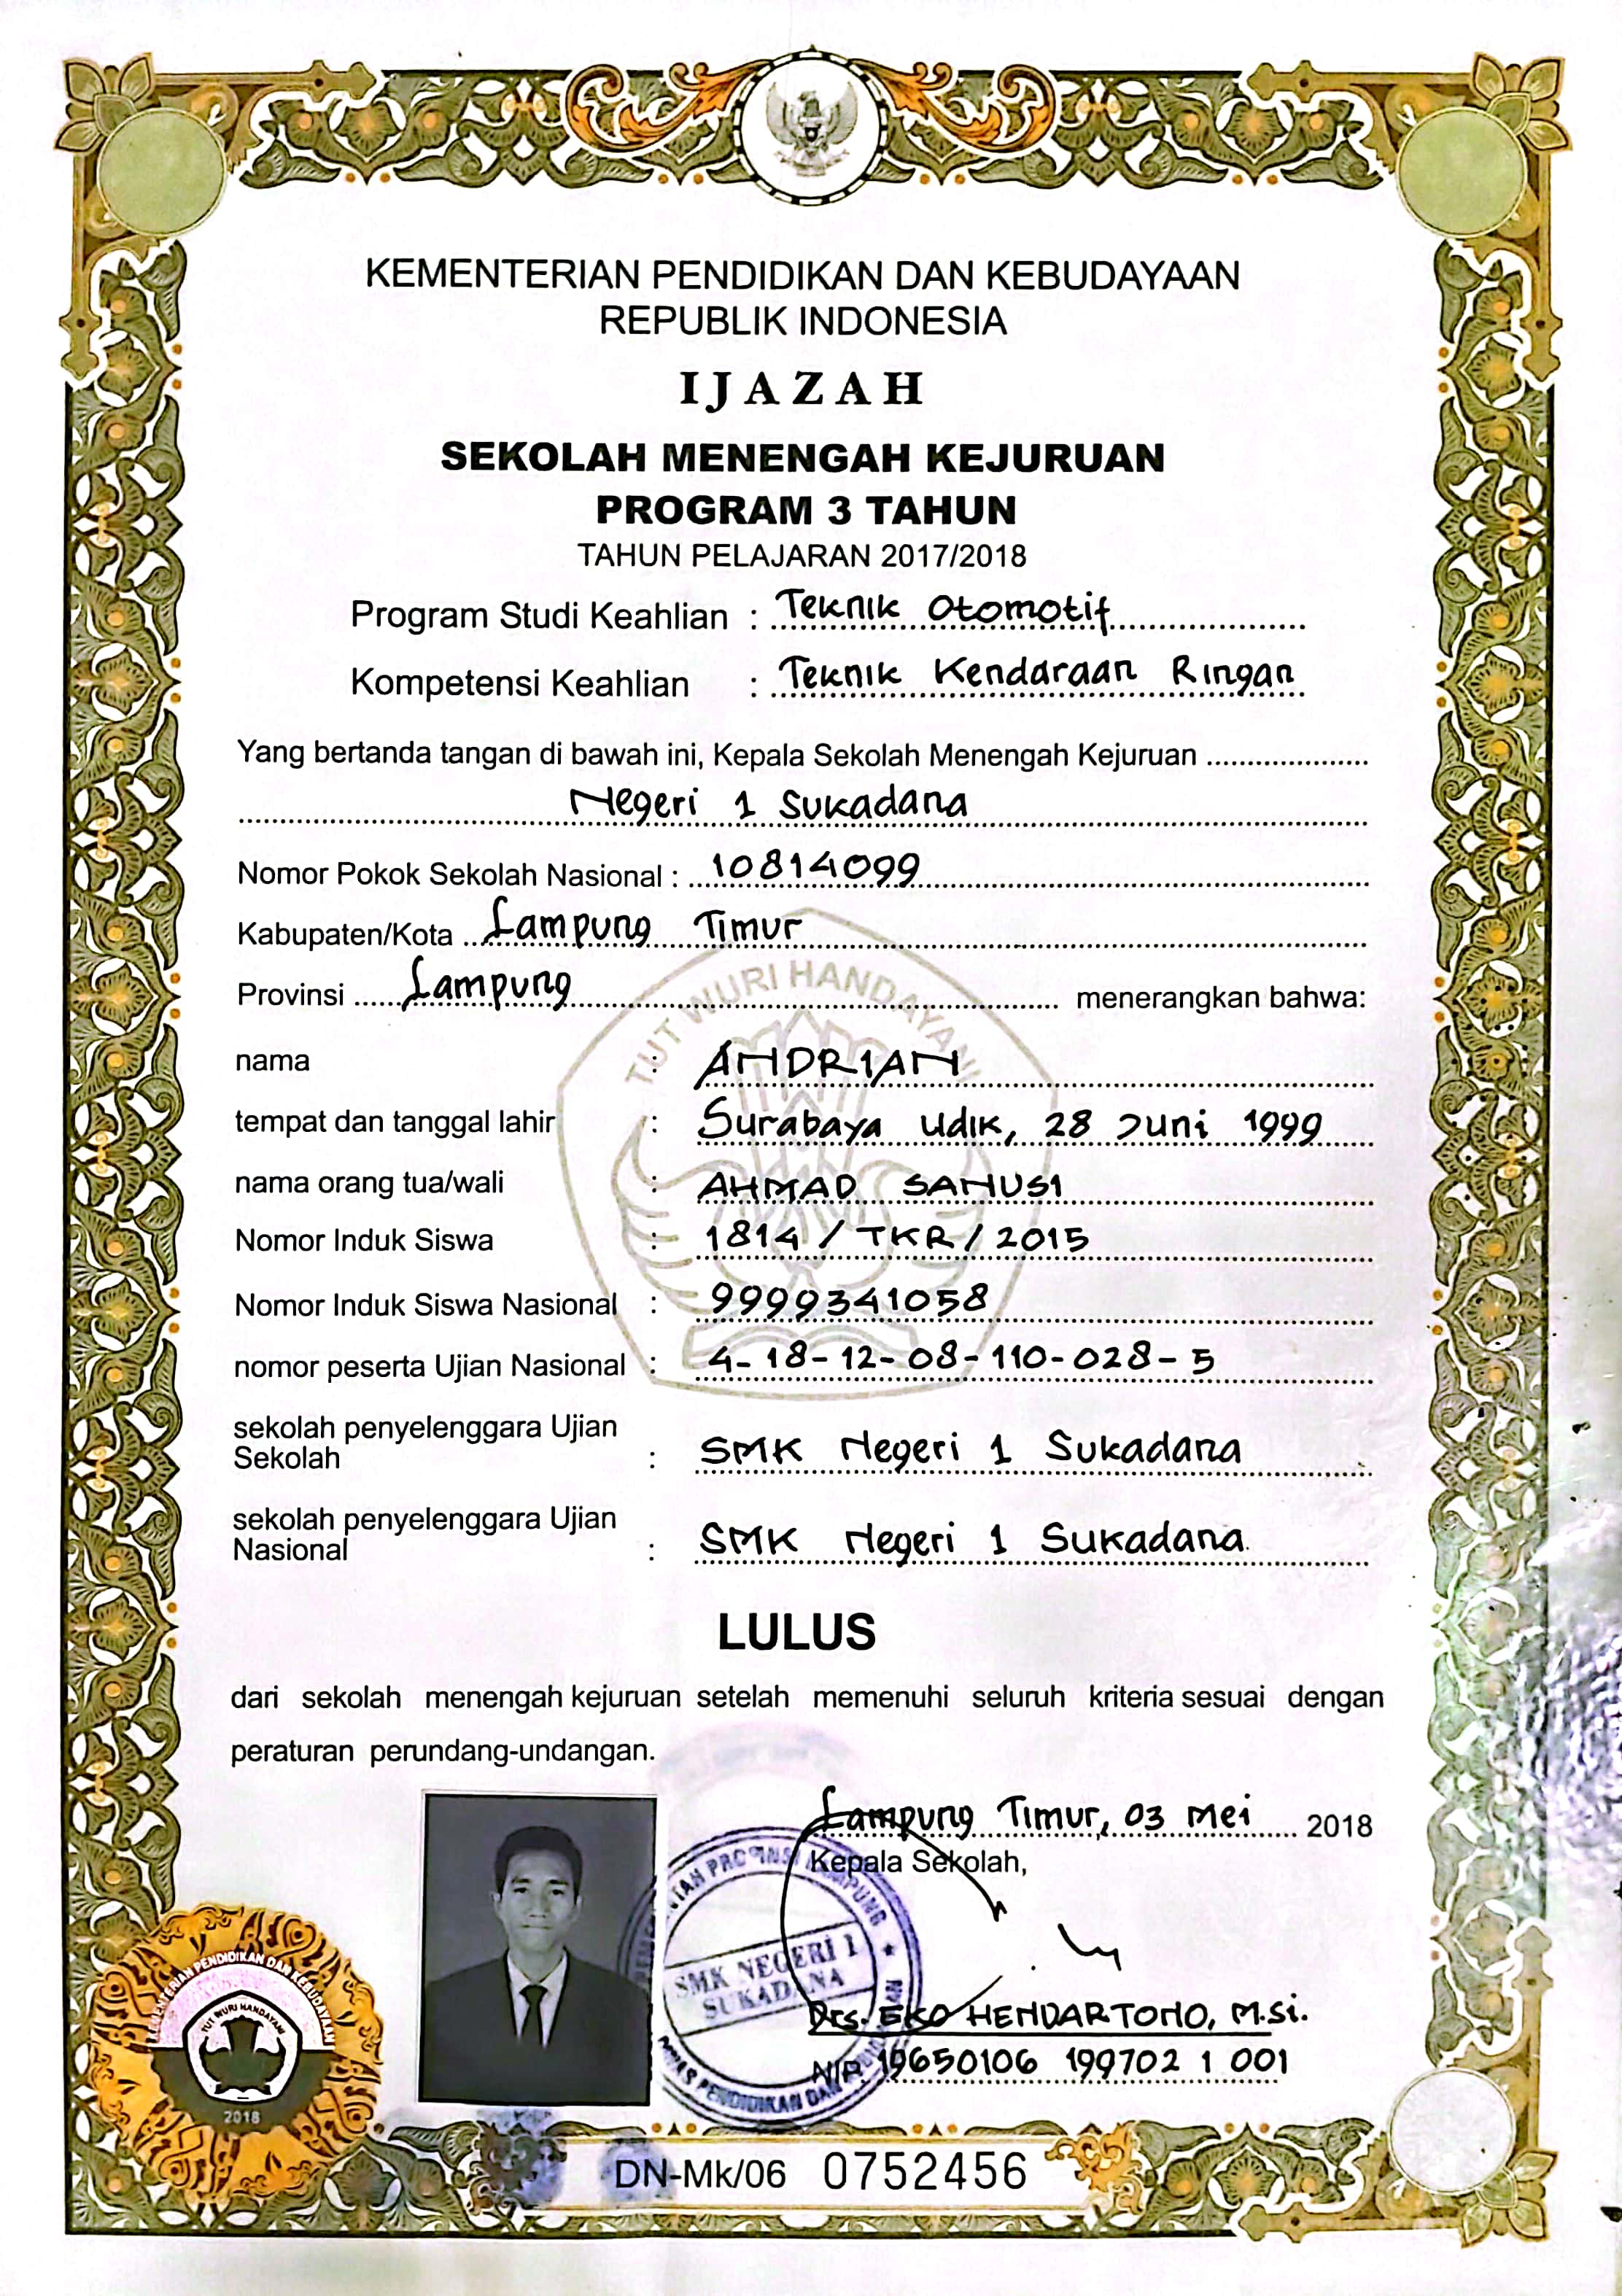 KEMENTERIAN PENDIDIKAN DAN KEBUDAYAAN
REPUBLIK INDONESIA
IJAZAH
SEKOLAH MENENGAH KEJURUAN
PROGRAM 3 TAHUN
TAHUN PELAJARAN 2017/2018
Program Studi Keahlian : Teknik Otomotif
Kompetensi Keahlian : Teknik Kendaraan Ringan
Yang bertanda tangan di bawah ini, Kepala Sekolah Menengah Kejuruan
Negeri 1 Sukadana
Nomor Pokok Sekolah Nasional : 10814099
Kabupaten/Kota Lampung Timur
Provinsi Lampung menerangkan bahwa:
TUT WURI HANDAYANI
nama : ANDRIAN
tempat dan tanggal lahir : Surabaya Udik, 28 Juni 1999
nama orang tua/wali : AHMAD SANUSI
Nomor Induk Siswa : 1814 / TKR / 2015
Nomor Induk Siswa Nasional : 9999341058
nomor peserta Ujian Nasional : 4-18-12-08-110-028-5
sekolah penyelenggara Ujian
Sekolah : SMK Negeri 1 Sukadana
sekolah penyelenggara Ujian
Nasional : SMK Negeri 1 Sukadana
LULUS
dari sekolah menengah kejuruan setelah memenuhi seluruh kriteria sesuai dengan
peraturan perundang-undangan.
Lampung Timur, 03 Mei 2018
Kepala Sekolah,
SMK NEGERI 1
SUKADANA
PENDIDIKAN DAN
Drs. EKO HENDARTONO, M.Si.
NIP 19650106 199702 1 001
KEMENTERIAN PENDIDIKAN DAN KEBUDAYAAN
TUT WURI HANDAYANI
2018
DN-Mk/06 0752456